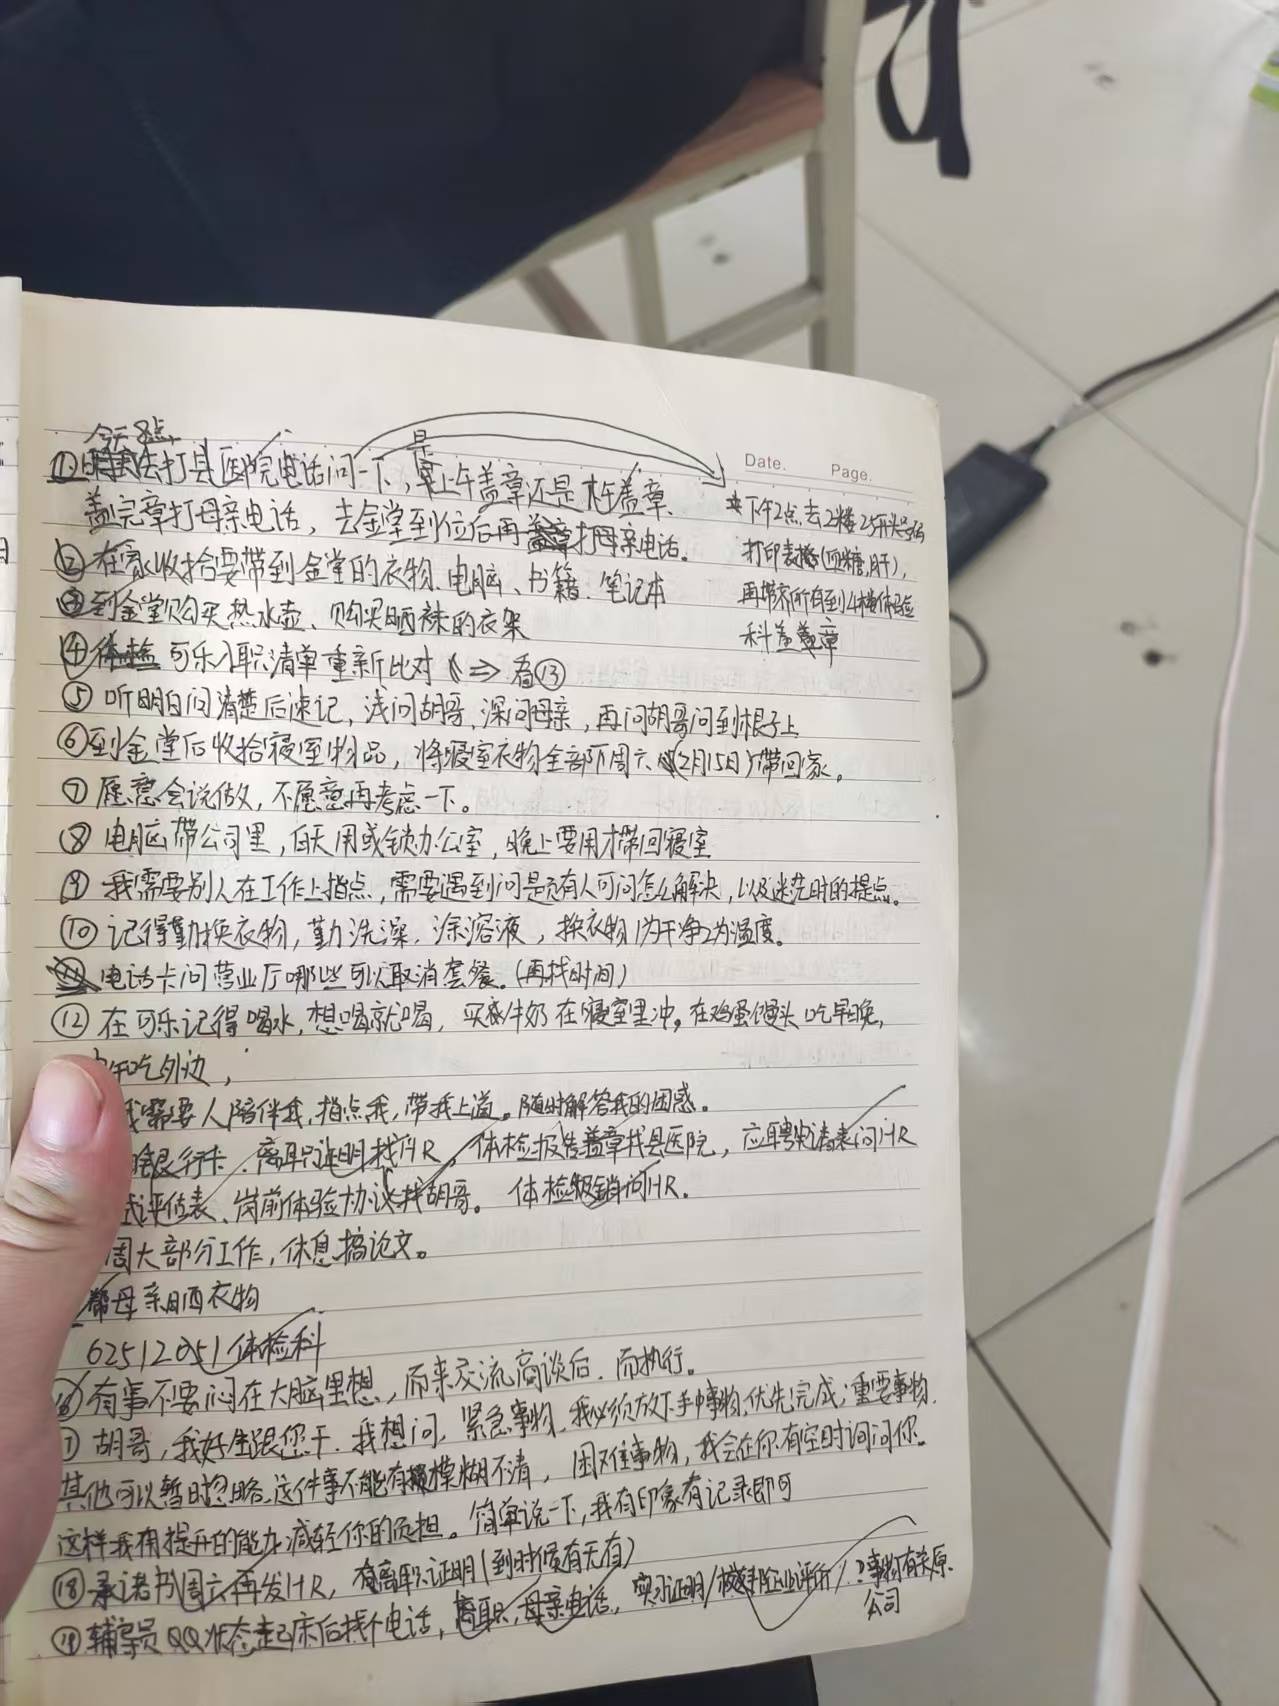 今天8点
Date. Page.
① 去打县医院电话问一下,是上午盖章还是下午盖章.
盖完章打母亲电话,去金堂到位后再打母亲电话。
*下午2点,去2楼25开头号码
打印表格(血糖,肝),
再带着所有到4楼体检
科盖章
② 在家收拾要带到金堂的衣物、电脑、书籍、笔记本
③ 到金堂购买热水壶、购买晒袜的衣架
④ 可乐入职清单重新比对 => 看⑬
⑤ 听明白问清楚后速记,浅问胡哥,深问母亲,再问胡哥问到根子上
⑥ 到金堂后收拾寝室物品,将寝室衣物全部下周六(2月15日)带回家。
⑦ 愿意会说做,不愿意再考虑一下。
⑧ 电脑带公司里,白天用或锁办公室,晚上要用才带回寝室
⑨ 我需要别人在工作上指点,需要遇到问是否有人可问怎么解决,以及迷茫时的提点。
⑩ 记得勤换衣物,勤洗澡,涂溶液,换衣物1为干净2为温度。
⑪ 电话卡问营业厅哪些可以取消套餐。(再找时间)
⑫ 在可乐记得喝水,想喝就喝,买牛奶在寝室里冲。在鸡蛋馒头吃早晚,
午吃外边,
我需要人陪伴我,指点我,带我上道。随时解答我的困惑。
银行卡、离职证明找HR,体检报告盖章找县医院,应聘申请表问HR
试评估表、岗前体验协议找胡哥。体检报销问HR.
周大部分工作,休息搞论文。
帮母亲晒衣物
62512051体检科
⑯ 有事不要闷在大脑里想,而来交流商谈后,而执行。
⑰ 胡哥,我好生跟您干,我想问,紧急事物,我必须放下手中事物,优先完成,重要事物.
其他可以暂时忽略.这件事不能有模糊不清,困难事物,我会在你有空时询问你。
这样我有提升的能力,减轻你的负担。简单说一下,我有印象有记录即可
⑱ 承诺书周六再发HR,离职证明(到时候有无有)
⑲ 辅导员QQ状态起床后找个电话,离职,母亲电话,实习证明/企业评价/?事物有关原
公司